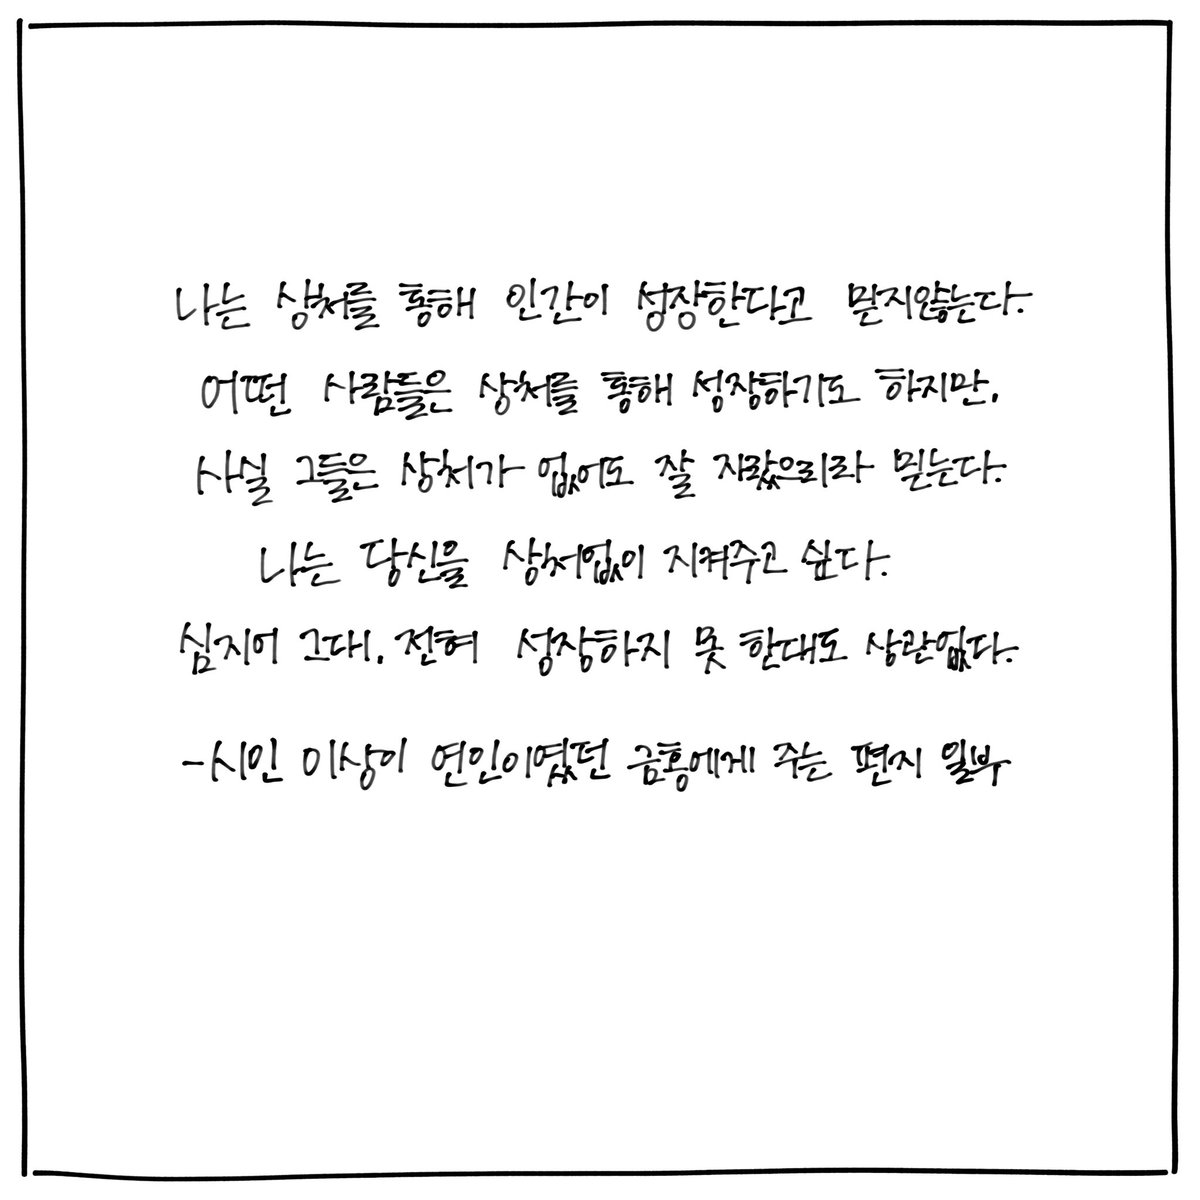 나는 상처를 통해 인간이 성장한다고 믿지않는다.
어떤 사람들은 상처를 통해 성장하기도 하지만.
사실 그들은 상처가 없어도 잘 자랐으리라 믿는다.
나는 당신을 상처없이 지켜주고 싶다.
심지어 그대. 전혀 성장하지 못 한대도 상관없다.
-시인 이상이 연인이였던 금홍에게 주는 편지 일부